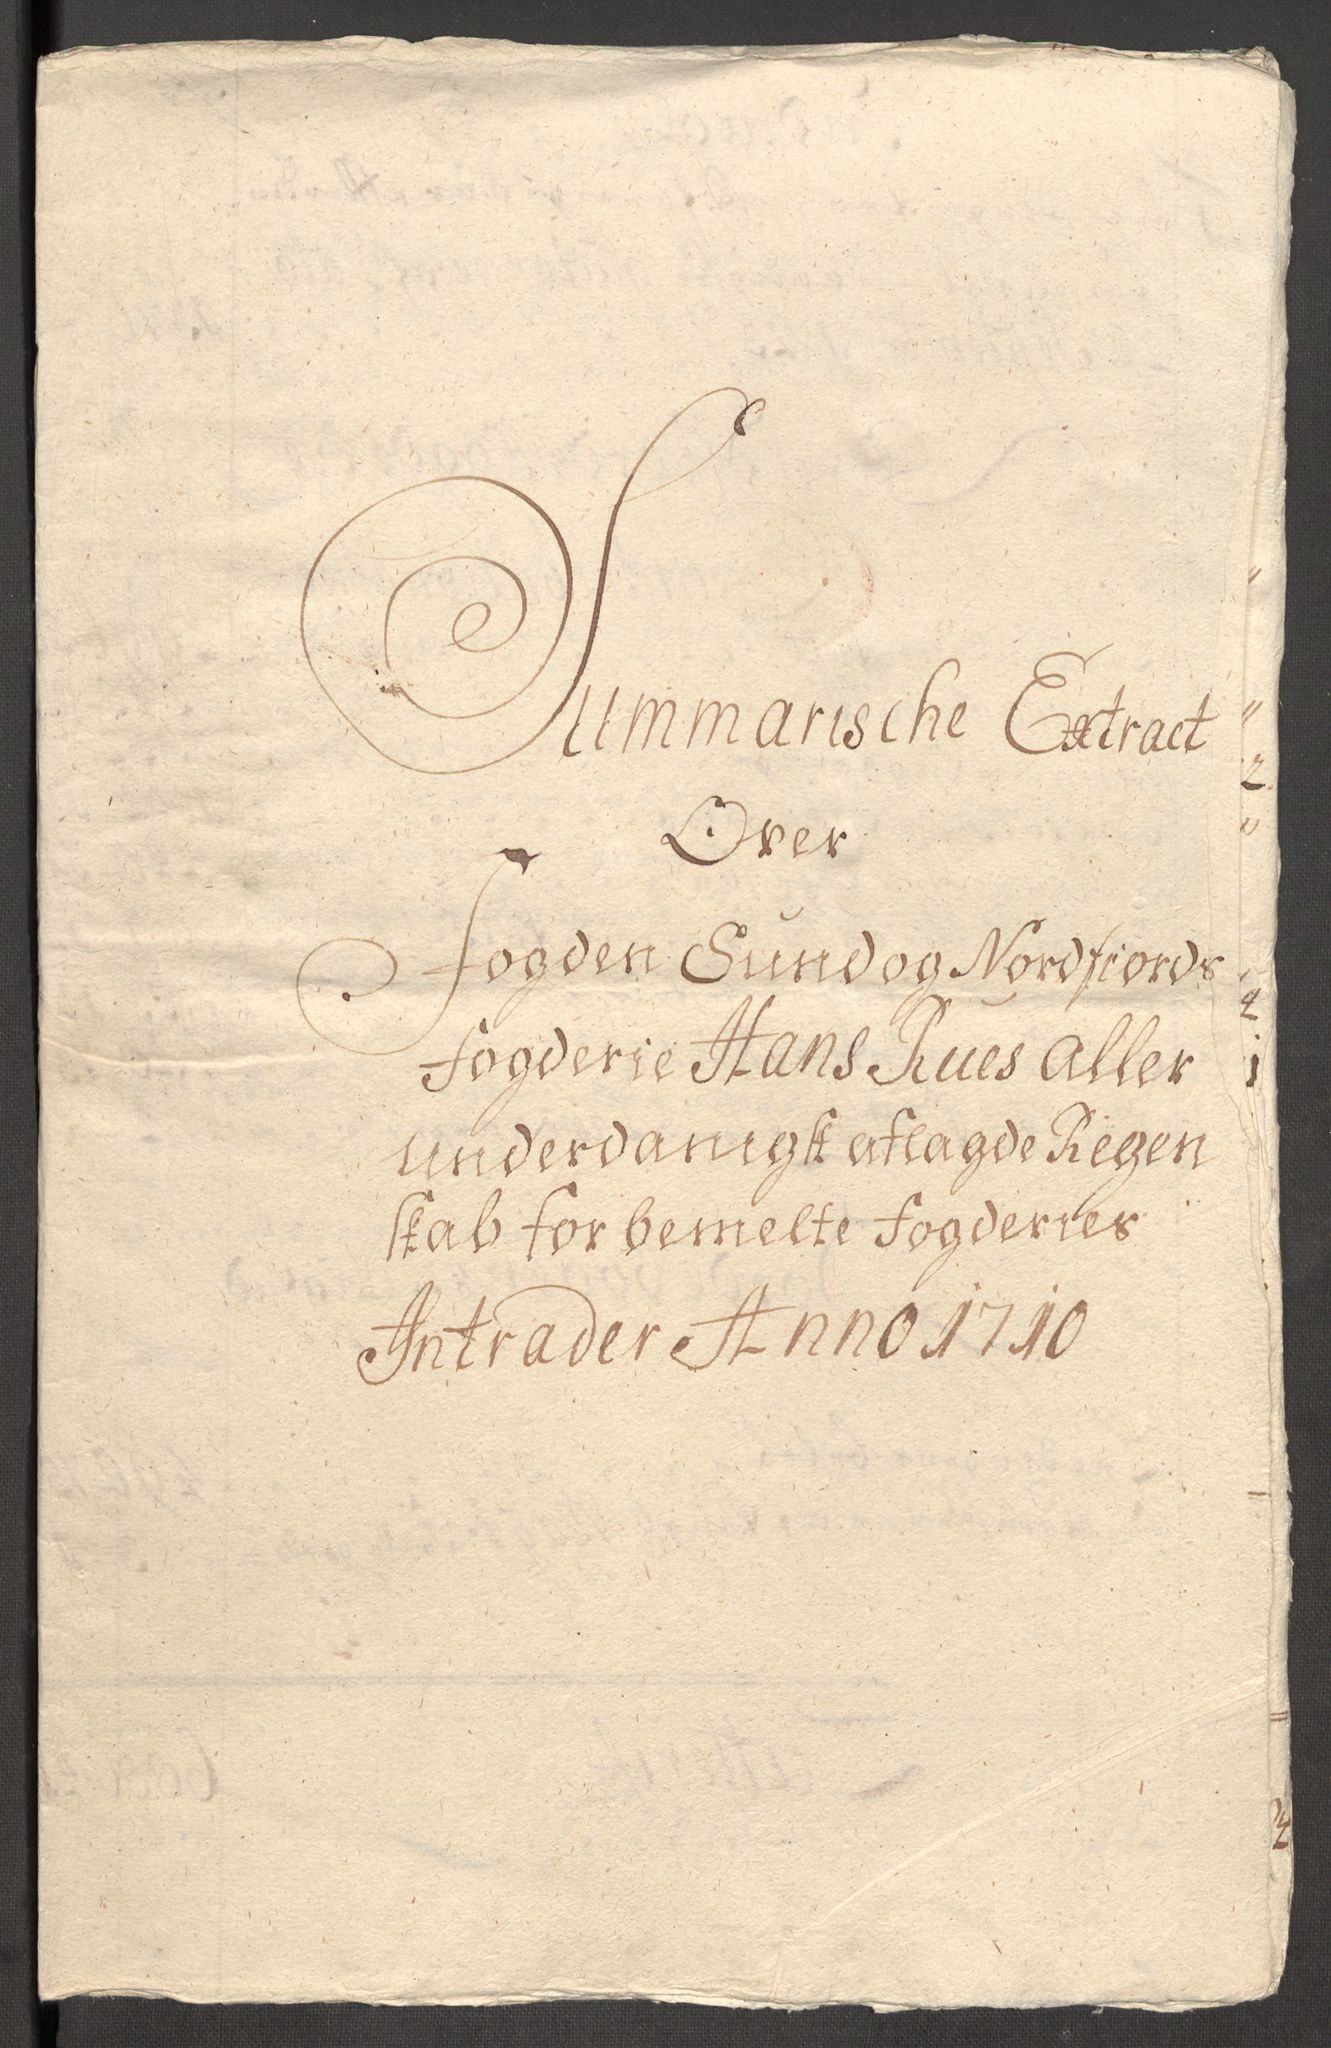 Summarische Extract
Over
Fogden Sund og Nordfiords
fogderie Hans Rues aller
underdanigst aflagde Regen
skab for bemelte fogderies
Intrader Anno 1710